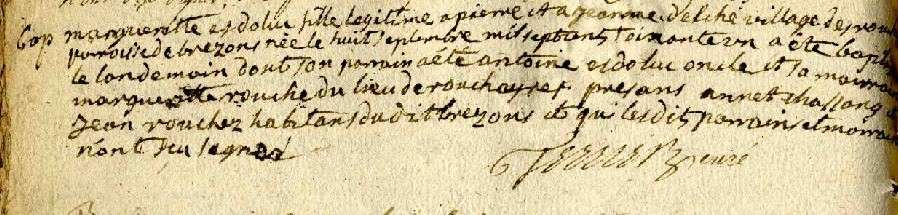 bap margueritte esdoluc fille legitime a pierre et a jeanne delché village de
parroisse de brezons née le huit septembre mil sept cens soixante un a été bapt
le landemain dont son parrain a été antoine esdoluc oncle et sa marra
margueritte rouche du lieu de rouchayres presans annet chassang
jean rouchez habitans du dit brezons et qui les dits parrain et marrain
n'ont su signer
curé